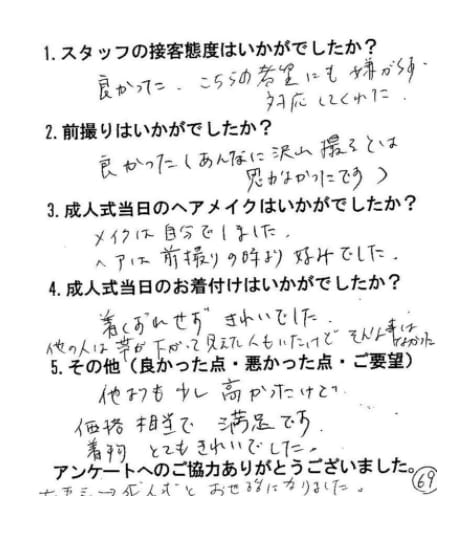 1.スタッフの接客態度はいかがでしたか？
良かった．こちらの希望にも嫌がらず
対応してくれた．
2.前撮りはいかがでしたか？
良かった（あんなに沢山撮るとは
思わなかったです）
3.成人式当日のヘアメイクはいかがでしたか？
メイクは自分でしました．
ヘアは前撮りの時より好みでした．
4.成人式当日のお着付けはいかがでしたか？
着くずれせず きれいでした．
他の人は帯が下がって見えた人もいたけど そんな事はなかった
5.その他（良かった点・悪かった点・ご要望）
他よりも少し高かったけど
価格相当で 満足です．
着物 とてもきれいでした。
アンケートへのご協力ありがとうございました。
成人式と お世話になりました。
69